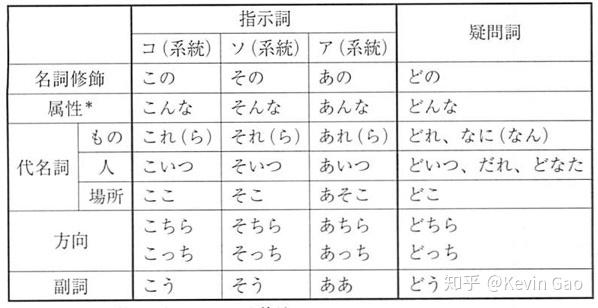 指示詞 疑問詞
コ(系統) ソ(系統) ア(系統)
名詞修飾 この その あの どの
属性* こんな そんな あんな どんな
代名詞 もの これ(ら) それ(ら) あれ(ら) どれ、なに(なん)
人 こいつ そいつ あいつ どいつ、だれ、どなた
場所 ここ そこ あそこ どこ
方向 こちら そちら あちら どちら
こっち そっち あっち どっち
副詞 こう そう ああ どう
知乎 @Kevin Gao